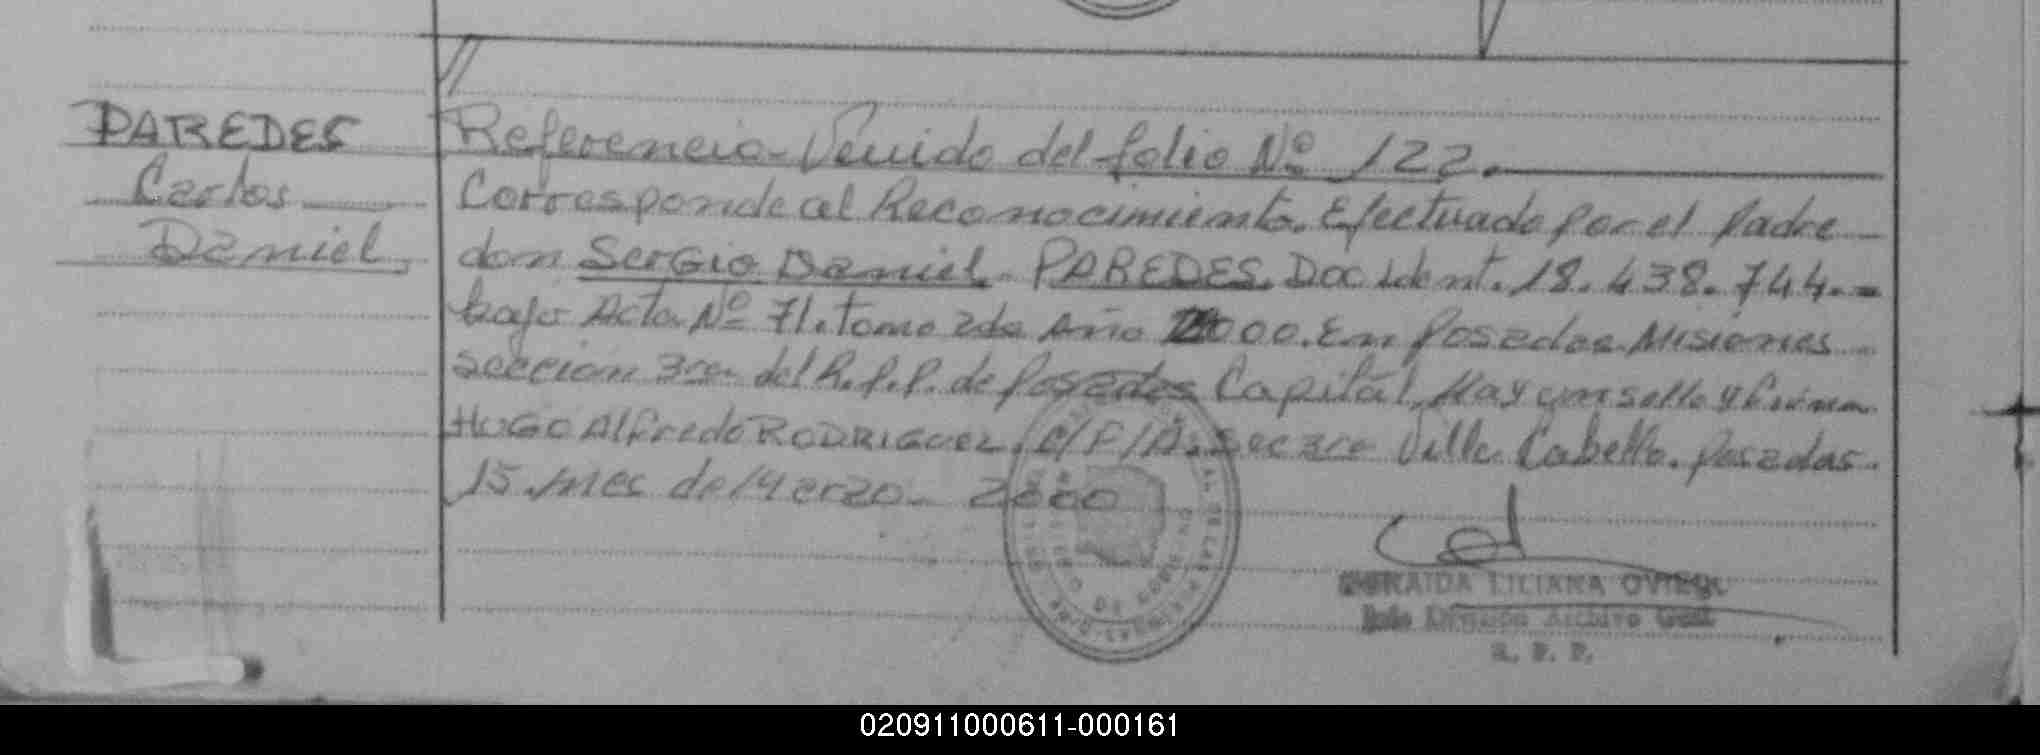 PAREDES
Carlos
Daniel,
Referencia - Venido del folio Nº 122.
Corresponde al Reconocimiento. Efectuado por el Padre
don Sergio Daniel PAREDES. Doc Ident. 18.438.744.-
bajo Acta Nº 71. tomo 2do Año 2000. En Posadas Misiones
sección 3ra. del R.P.P. de Posadas Capital, Hay un sello y firma
HUGO Alfredo RODRIGUEZ. c/F/A. Sec 3ra Villa Cabello. Posadas.
15. mes de Marzo - 2000
LILIANA OVIEDO
Archivo Gral
R. P. P.
020911000611-000161